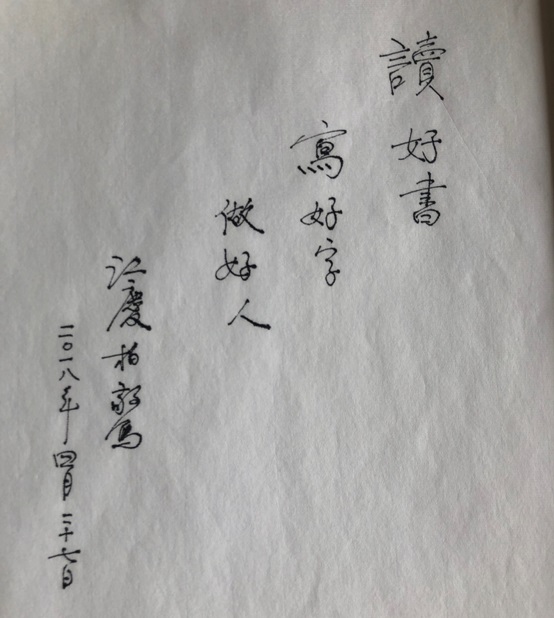 讀好書
寫好字
做好人
江慶柏敬寫
二〇一八年四月二十七日